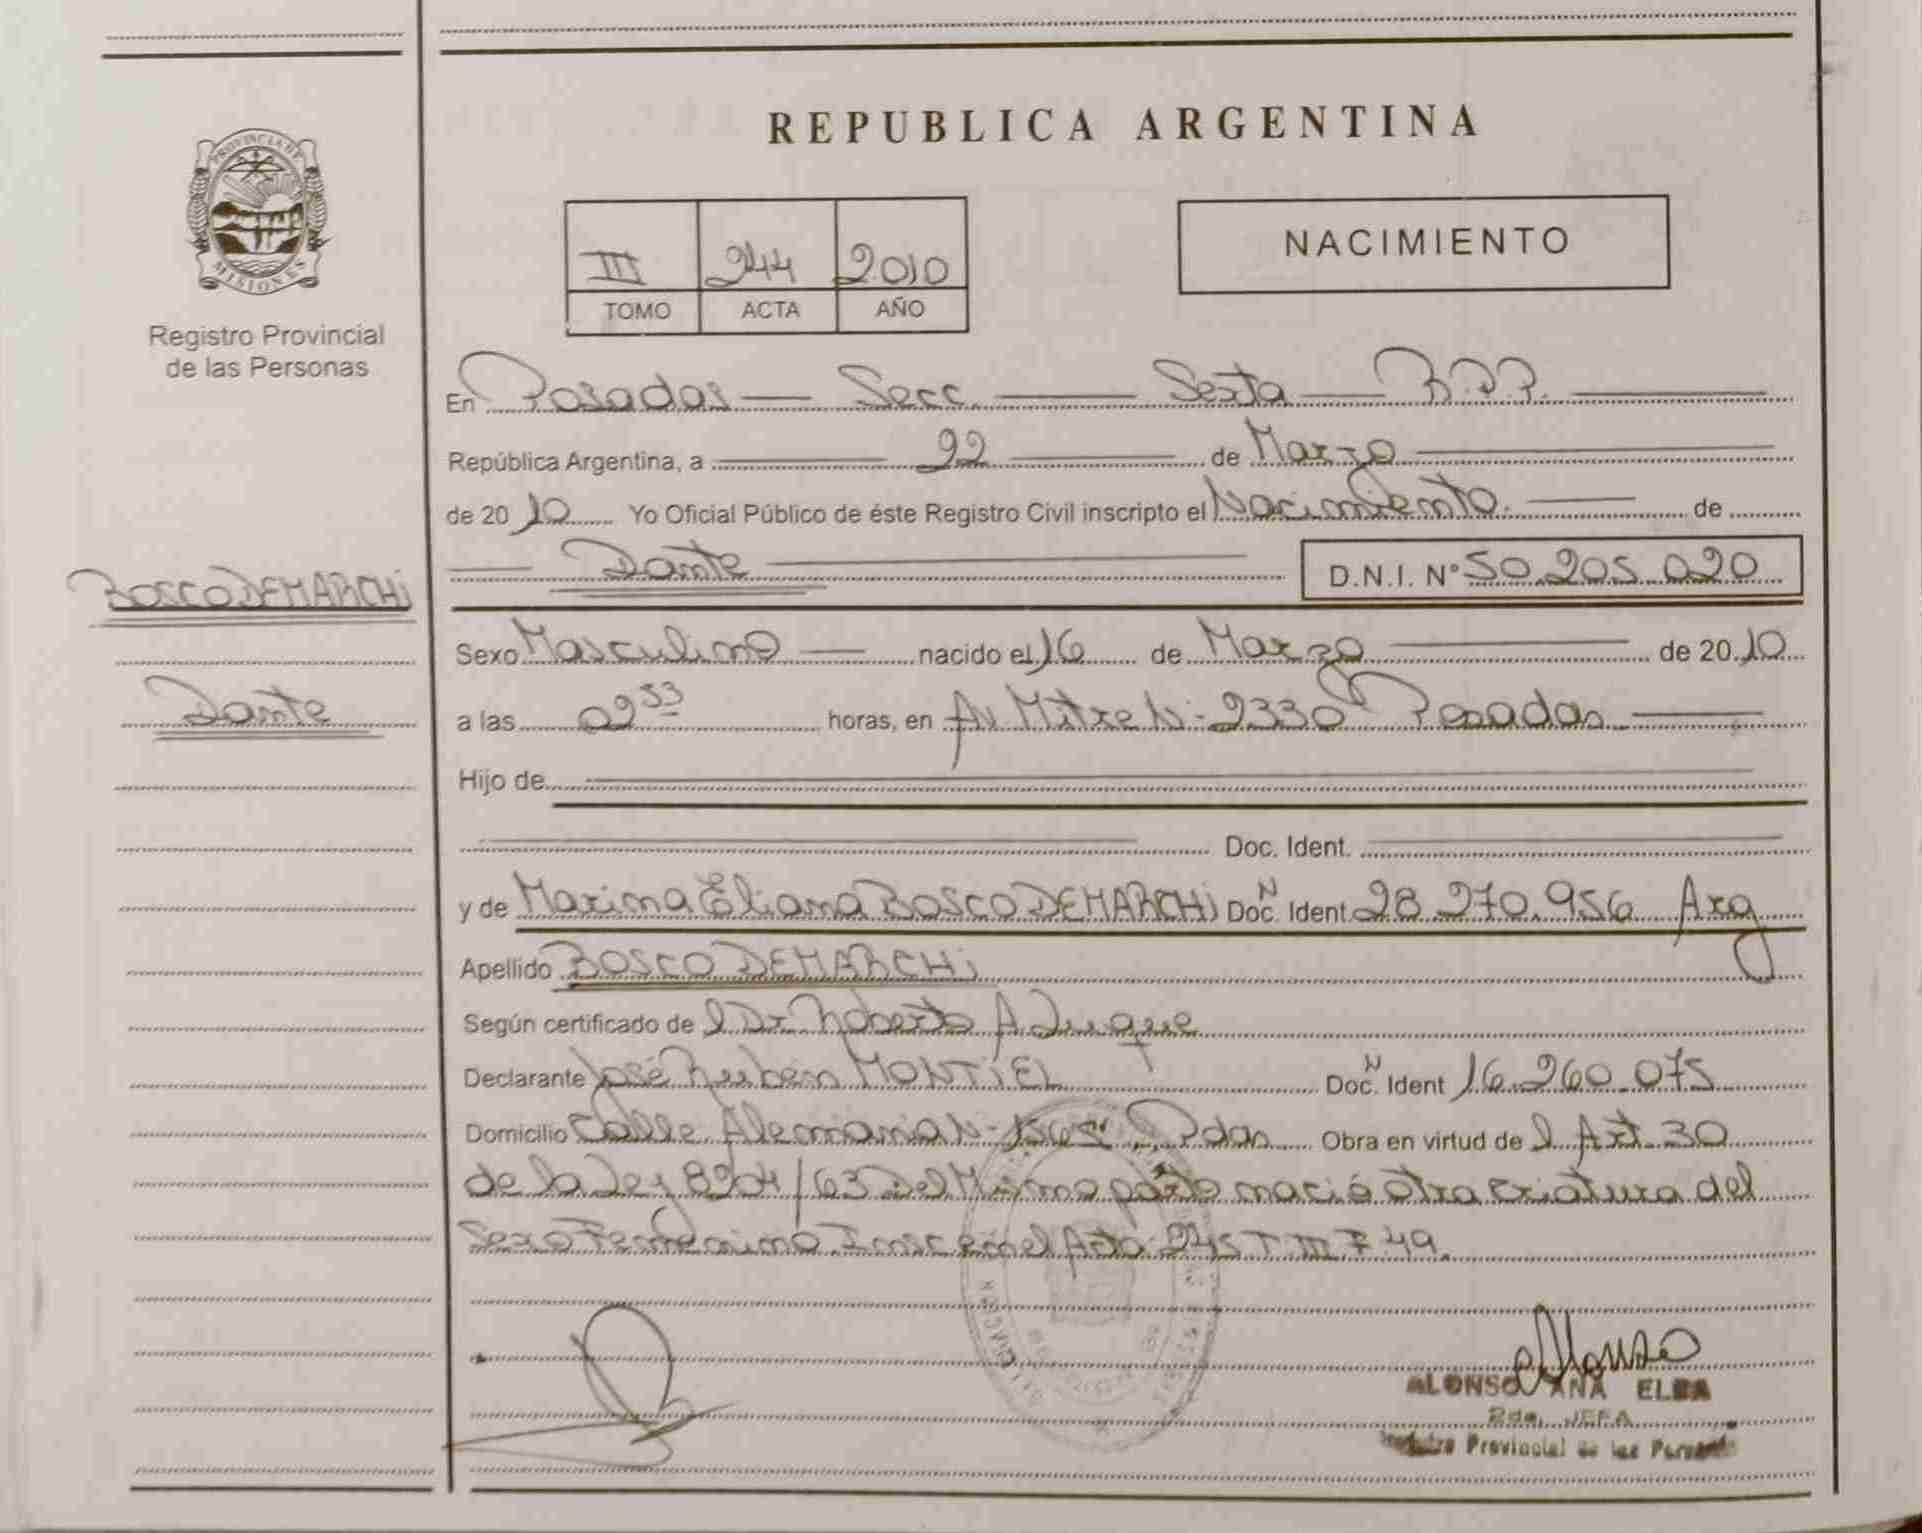 PROVINCIA DE
MISIONES
Registro Provincial
de las Personas
BOSCO DEMARCHi
Dante
REPUBLICA ARGENTINA
III 244 2010
TOMO ACTA AÑO
NACIMIENTO
En Posadas — Secc. — Sexta — R.P.P. —
República Argentina, a — 22 — de Marzo —
de 2010 Yo Oficial Público de éste Registro Civil inscripto el Nacimiento. — de
— Dante — D.N.I. Nº 50.205.020
Sexo Masculino — nacido el 16 de Marzo — de 2010
a las 02 53 horas, en Av Mitre N- 2330 Posadas —
Hijo de —
— Doc. Ident. —
y de Marina Eliana BOSCO DEMARCHi Doc. N Ident. 28.270.956 Arg
Apellido BOSCO DEMARCHi
Según certificado de l Dr Roberto A Luque
Declarante José Ruben MONTiEL Doc. N Ident 16.260.075
Domicilio Calle Alemania N- Pdas Obra en virtud de l Art. 30
de la Ley 8204/63 Del Mismo parto nació otra criatura del
Sexo Femenino Insc en el Acta 245 T III F 49.
ALONSO ANA ELBA
2da. JEFA
Registro Provincial de las Personas